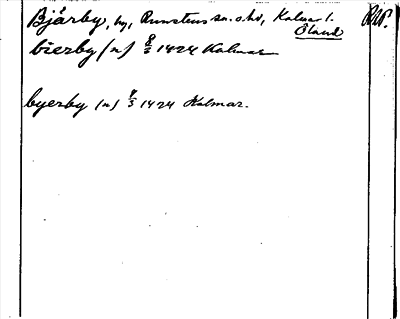 Bjärby, by, Runstens sn. o. hd, Kalmar l.
Öland
bierby (n) 8/3 1424 Kalmar
byerby (n) 8/3 1424 Kalmar.